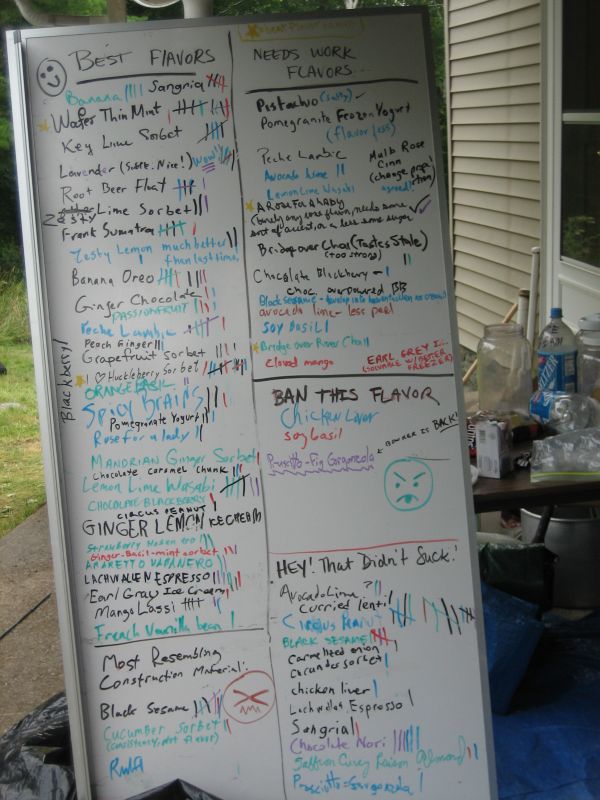 BEST FLAVORS
Banana
Sangria
Wafer Thin Mint
Key Lime Sorbet
Lavender (Subtle. Nice!) Wow!
Root Beer Float
Zesty Lime Sorbet
Frank Sumatra
Zesty Lemon much better than last time!
Banana Oreo
Ginger Chocolate
PASSIONFRUIT
Peche Lambic
Peach Ginger
Grapefruit Sorbet
Blackberry
I ♡ Huckleberry Sorbet
ORANGE BASIL
SPICY BRAINS
Pomegranate Yogurt
Rose for a lady
MANDRIAN Ginger Sorbet
Chocolate caramel chunk
Lemon Lime Wasabi
CHOCOLATE BLACKBERRY
CIRCUS PEANUT
GINGER LEMON ICE CREAM
Strawberry Habanero
Ginger-Basil-mint sorbet
AMARETTO HABANERO
LACHWALLEN ESPRESSO
Earl Gray Ice Cream
Mango Lassi
French Vanilla bean
Most Resembling
Construction Material:
Black Sesame
Cucumber Sorbet
(consistency, not flavor)
NEEDS WORK
FLAVORS...
Pistachio (salty)
Pomegranite Frozen Yogurt
(flavorless)
Peche Lambic
Avocado Lime
Lemon Lime Wasabi
Mulb Rose
Cinn
(change prop!
agreed!
A ROSE FOR A LADY
Bridge over Chai (Tastes Stale)
(too strong)
Chocolate Blackberry -
choc. overpowered BB
Black sesame -
avocado lime - less peel
SOY BASIL
Bridge over River Chai
Cloved mango
EARL GREY I.C.
(SOLVABLE W/ BETTER
FREEZER)
BAN THIS FLAVOR
Chicken Liver
SOY basil
Prosciutto-Fig Gorgonzola
BOWKER IS BACK!
HEY! That Didn't Suck!
Avocado Lime?
Curried lentil
Circus Peanut
BLACK SESAME
Carmelized onion
Cucumber sorbet
chicken liver
Lachwallen Espresso
Sangria
Chocolate Nori
Saffron Curry Raison Almond
Prosciutto-Gorgonzola